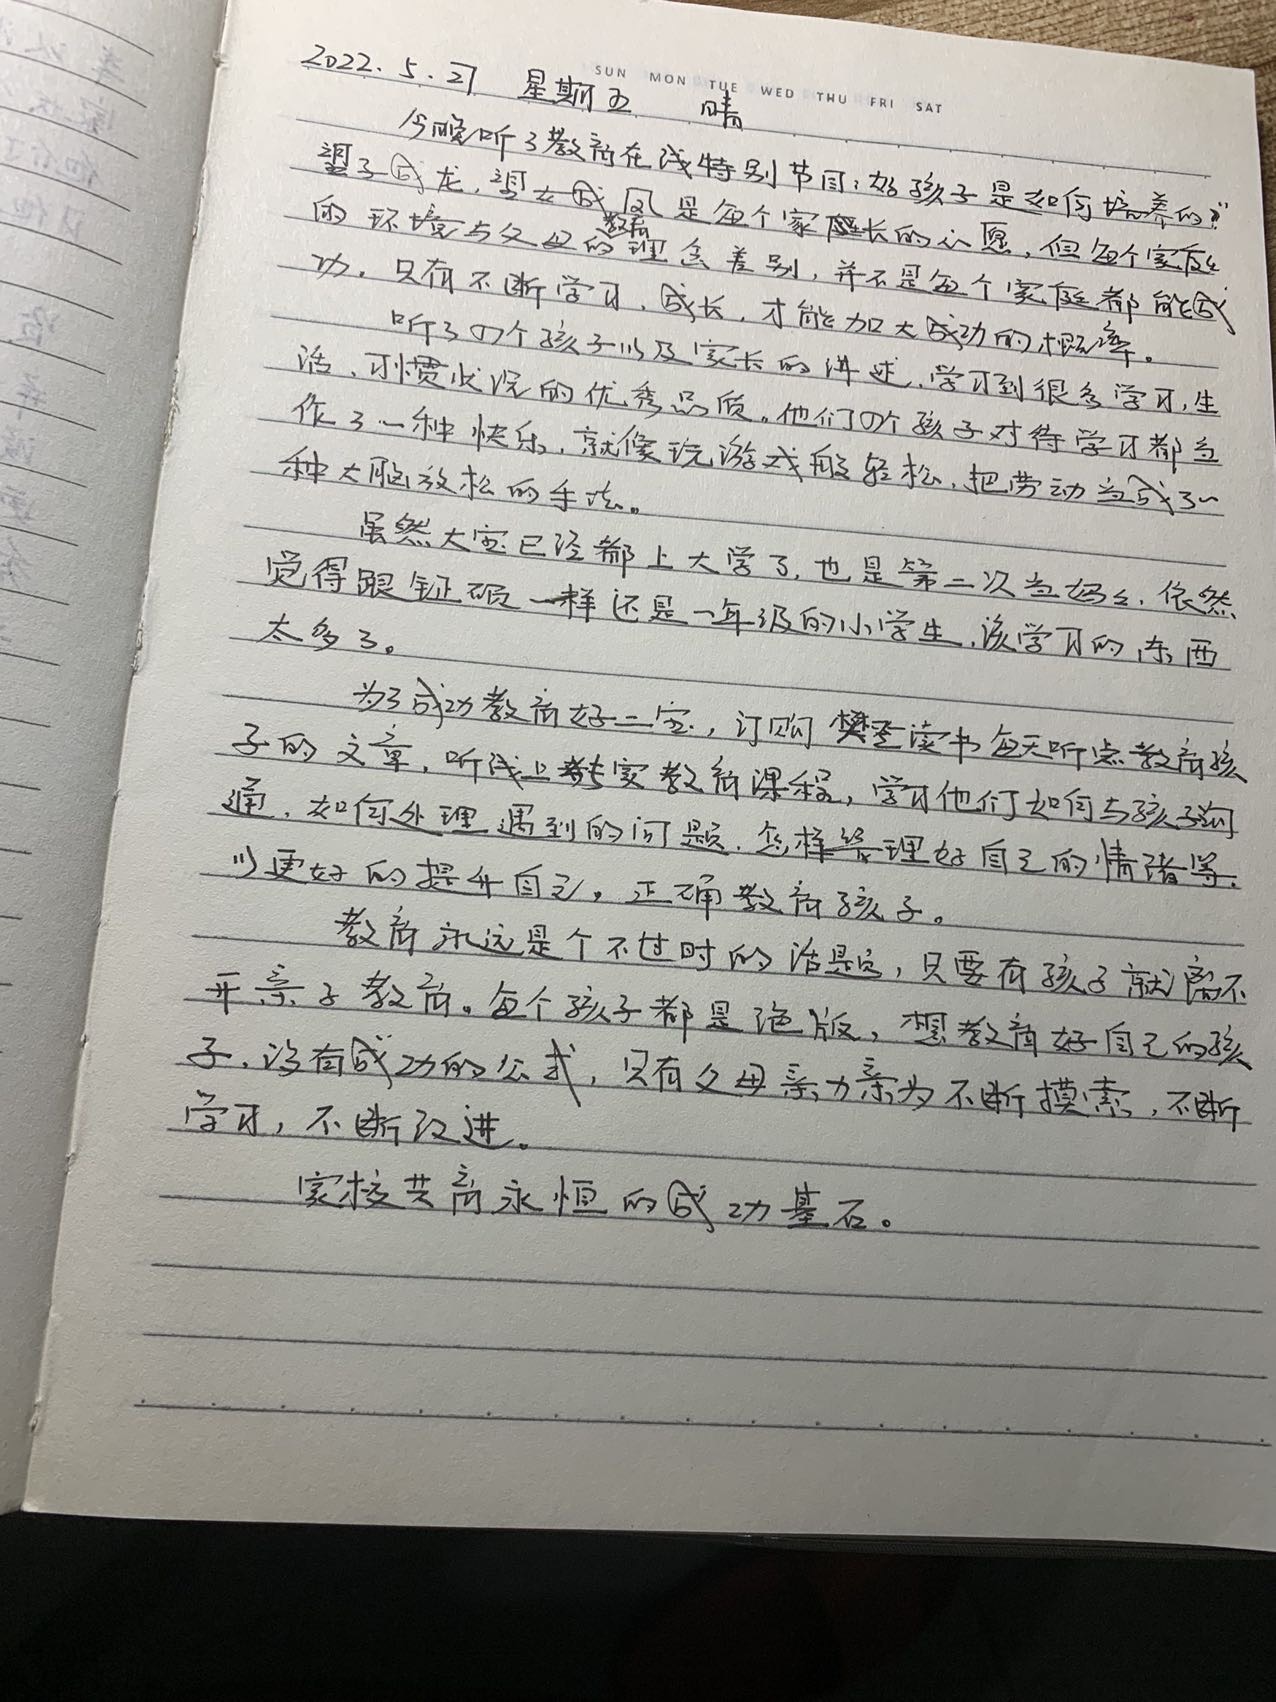 SUN MON TUE WED THU FRI SAT
2022.5.27 星期五 晴
今晚听了教育在线特别节目:好孩子是如何培养的?"
望子成龙,望女成凤是每个家长的心愿,但每个家庭
的环境与父母的教育理念差别,并不是每个家庭都能成
功。只有不断学习,成长,才能加大成功的概率。
听了四个孩子以及家长的讲述,学习到很多学习,生
活,习惯状况的优秀品质。他们四个孩子对待学习都当
作了一种快乐,就像玩游戏般轻松,把劳动当成了一
种大脑放松的手法。
虽然大宝已经都上大学了,也是第二次当妈妈,依然
觉得跟一样还是一年级的小学生,该学习的东西
太多了。
为了成功教育好二宝,订购樊登读书每天听点教育孩
子的文章,听线上专家教育课程,学习他们如何与孩子沟
通,如何处理遇到的问题,怎样管理好自己的情绪等,
以更好的提升自己。正确教育孩子。
教育永远是个不过时的话题,只要有孩子就离不
开亲子教育。每个孩子都是绝版,想教育好自己的孩
子,没有成功的公式,只有父母亲力亲为不断摸索,不断
学习,不断改进。
家校共育永恒的成功基石。